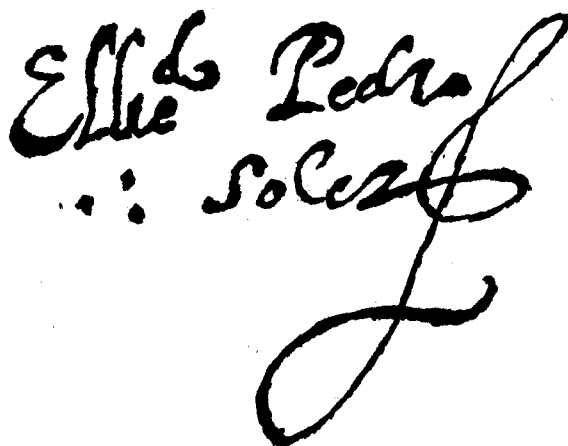 El licdo Pedro
Solez